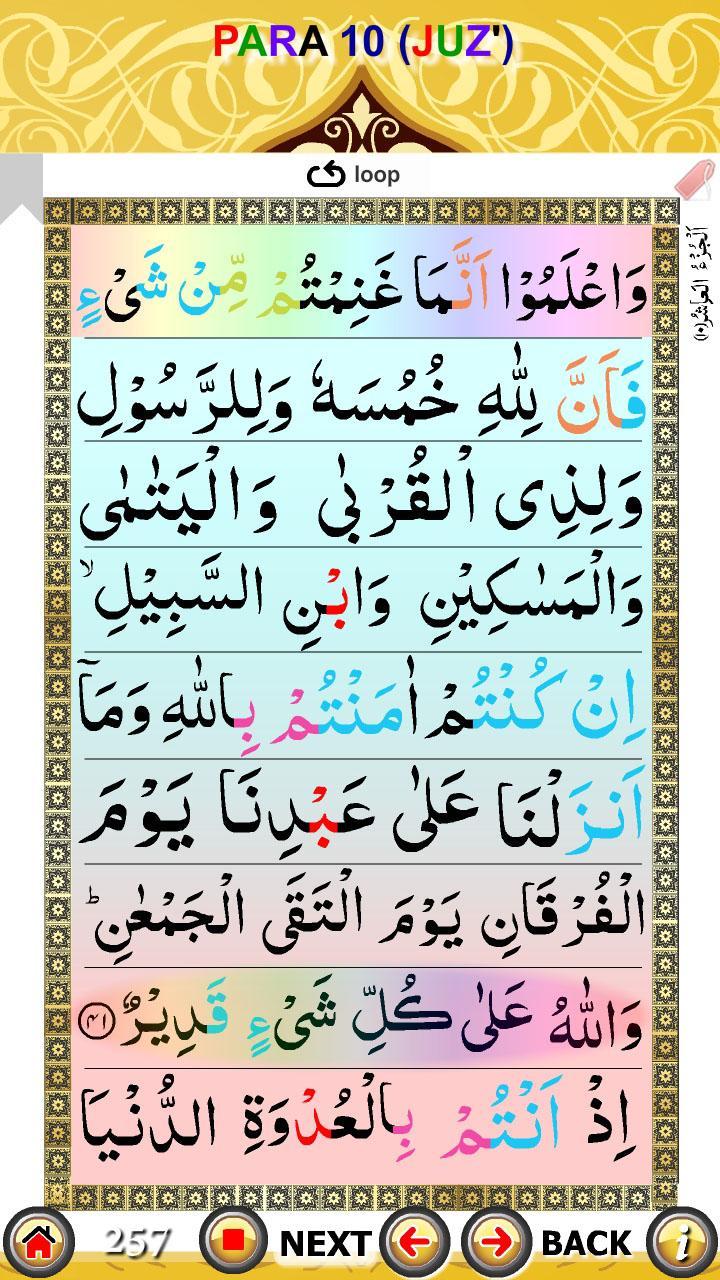 PARA 10 (JUZ')
loop
اَلْجُزْءُ الْعَاشِرُ (۱۰)
وَاعْلَمُوْٓا اَنَّمَا غَنِمْتُمْ مِّنْ شَیْءٍ
فَاَنَّ لِلّٰهِ خُمُسَهٗ وَلِلرَّسُوْلِ
وَلِذِی الْقُرْبٰی وَالْیَتٰمٰی
وَالْمَسٰكِیْنِ وَابْنِ السَّبِیْلِ ۙ
اِنْ كُنْتُمْ اٰمَنْتُمْ بِاللّٰهِ وَمَاۤ
اَنزَلْنَا عَلٰی عَبْدِنَا یَوْمَ
الْفُرْقَانِ یَوْمَ الْتَقَی الْجَمْعٰنِ ؕ
وَاللّٰهُ عَلٰی كُلِّ شَیْءٍ قَدِیْرٌ ۴۱
اِذْ اَنْتُمْ بِالْعُدْوَةِ الدُّنْیَا
257 NEXT BACK i